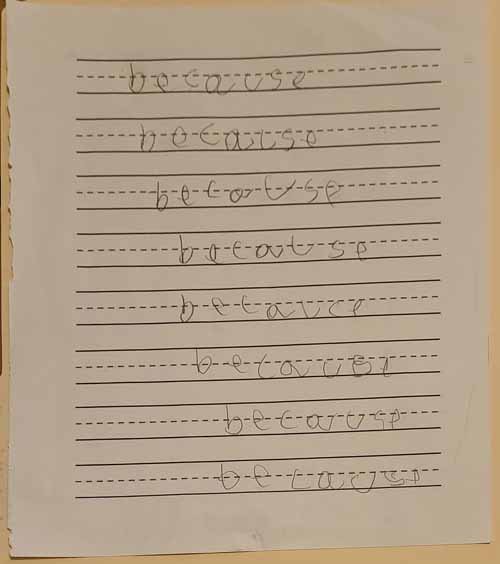 because
because
because
because
becauce
because
because
because